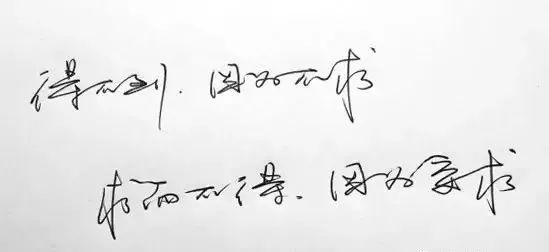 得不到.因为不求
求而不得.因为章求